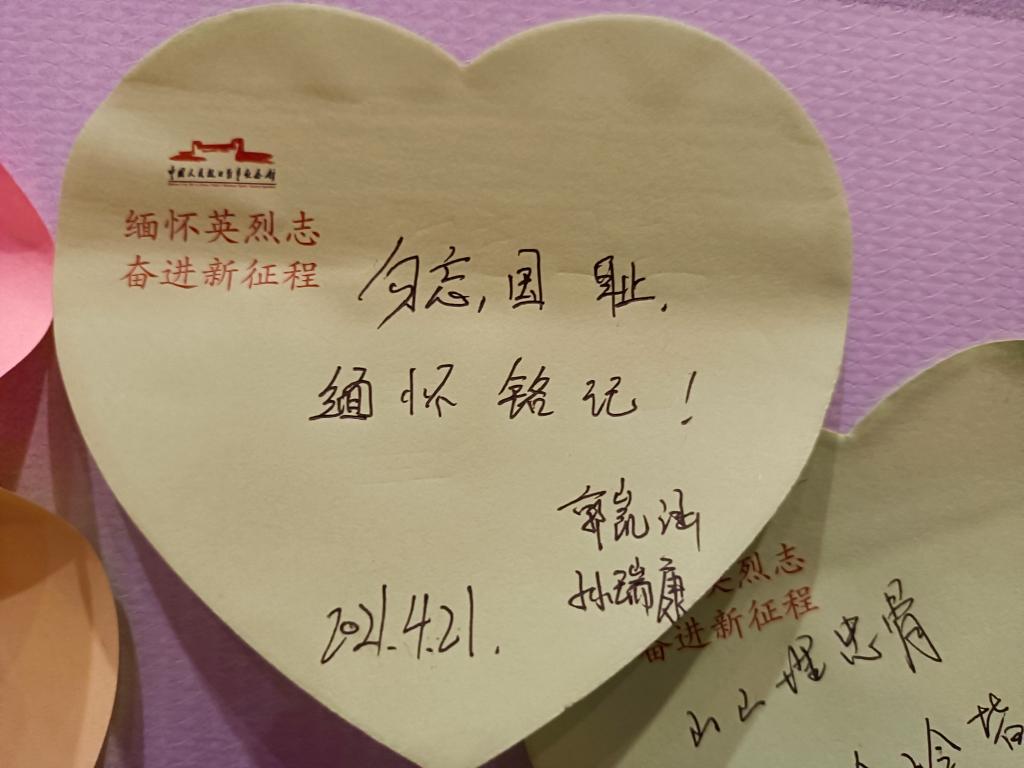 中国人民抗日战争纪念馆
缅怀英烈志
奋进新征程
勿忘,国耻.
缅怀铭记!
郭凯涵
孙瑞康
2021.4.21.
英烈志
奋进新征程
山山埋忠骨